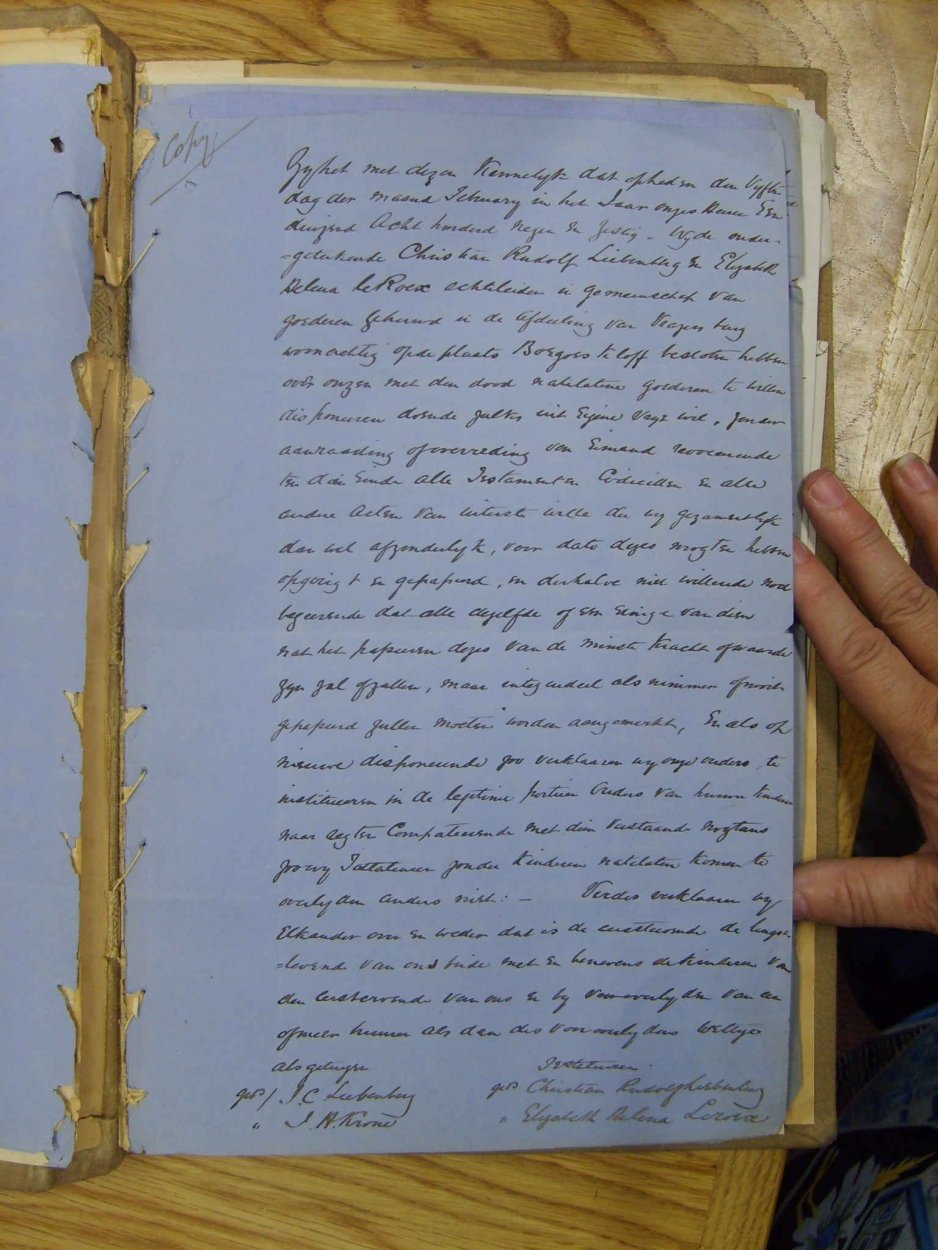 Copy
Zy het met dezen Kennelyk dat op heden den Vyfth
dag der maand February in het Jaar onzes Heere Een
duizend Acht honderd negen en zestig – Wy de onder-
=geteekende Christian Rudolf Liebenberg En Elizabeth
Helena le Roex echtelieden in gemeenschap van
goederen gehuwd in de afdeeling van
woonachtig op de plaats Boegoes Kloff besloten hebben
over onzen met den dood natelatene goederen te willen
disponeeren doende zulks uit Eigene vrye wil, zonder
aanraading of overreding van Eimand revoceerende
ten dien Einde alle Testamenten Codicillen en alle
andere Acten van uiterste wille die wy gezamentlyk
dan wel afzonderlyk, voor dato dezes mogten hebben
opgerigt en gepaseerd, en derhalve niet willende noch
begeerende dat alle dezelfde of een Eenige van dien
na het paseeren dezes van de minste Kracht of waarde
zyn zal of zullen, maar integendeel als nimmer
gepaseerd zullen moeten worden aangemerkt, En als op
nieuwe disponeerende zoo verklaaren wy onze ouders te
institueeren in de legitime portie Ouders van hunne Kinderen
naar regten Competeerende met dien Verstande nogtans
zoo wy Testateuren zonder Kinderen natelaten komen te
overlyden anders niet: – Verders verklaaren wy
Elkander over en weder dat is de eerststervende de langst-
=levende van ons beide met en benevens de Kinderen van
den eerstervende van ons en by vooroverlyden van een
of meer hunner als dan des vooroverlydens wettige
als getuigen Testateuren
get/ J. C Liebenberg getd Christian Rudolf Liebenberg
" J. H. Krone " Elizabeth Helena Leroex